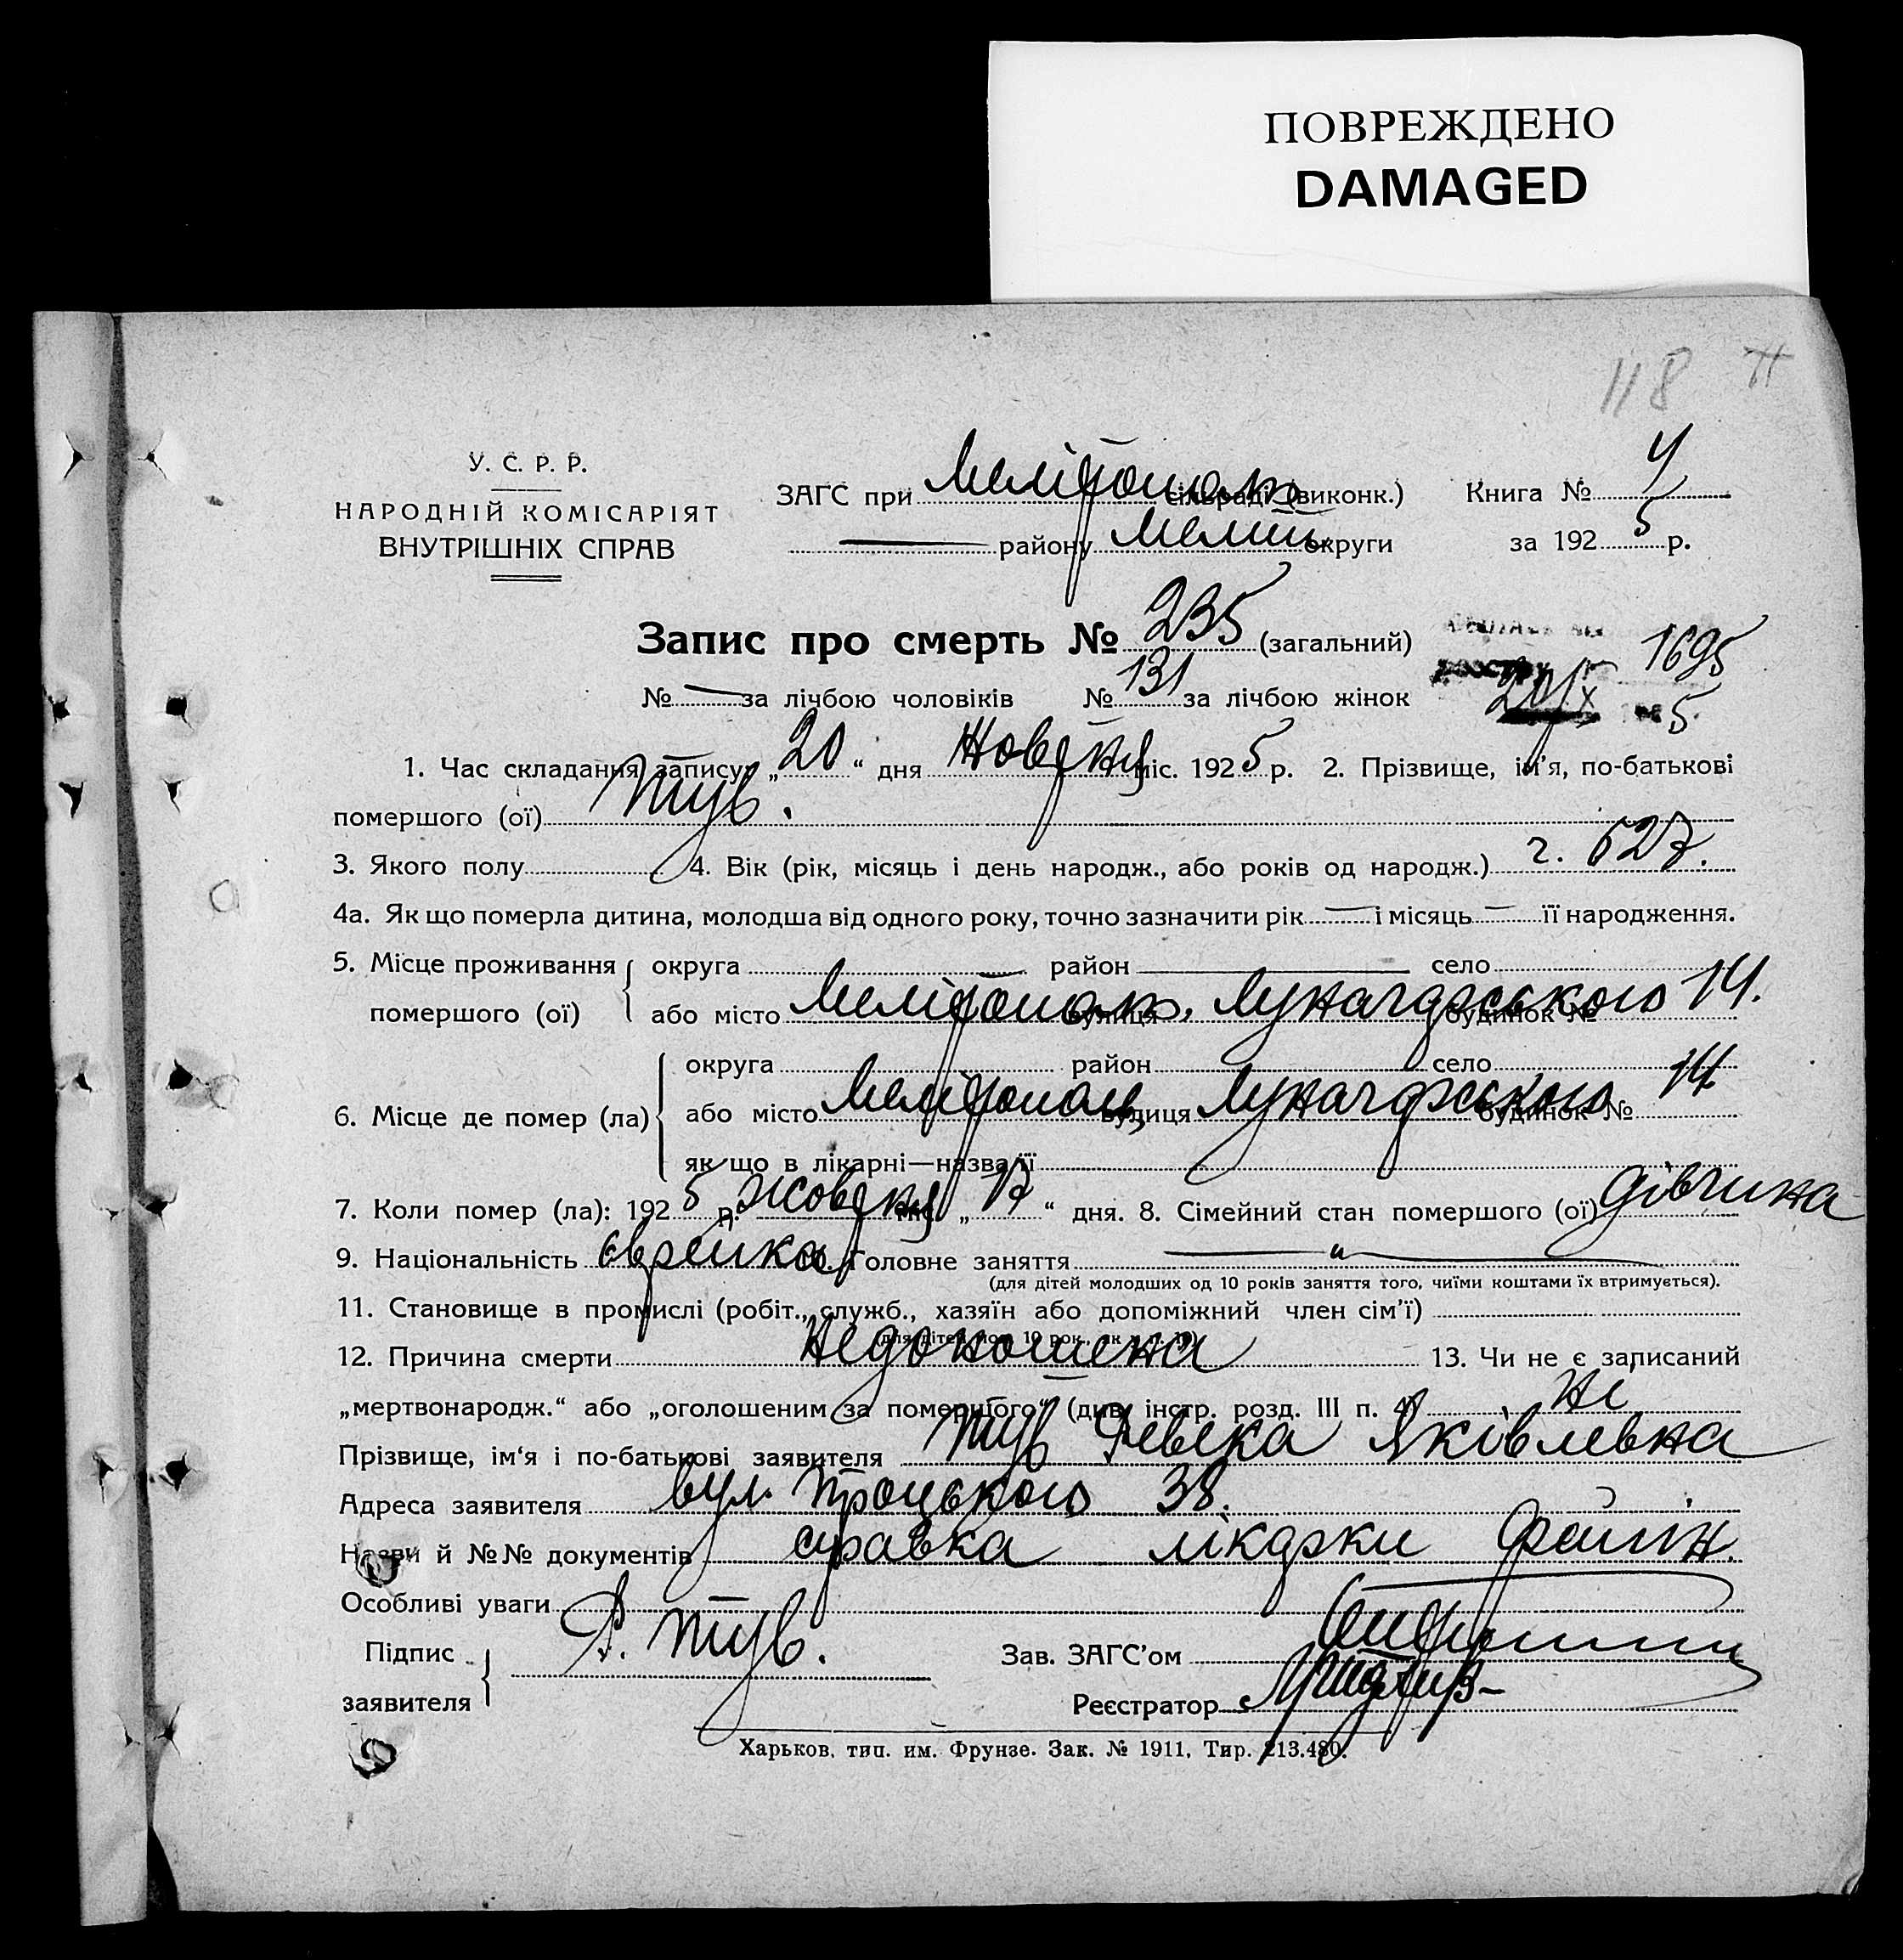 ПОВРЕЖДЕНО
DAMAGED
118
У. С. Р. Р.
НАРОДНІЙ КОМІСАРІЯТ
ВНУТРІШНІХ СПРАВ
ЗАГС при Мелітопол. сільраді (виконк.) Книга № 4
— району Меліт. округи за 1925 р.
Запис про смерть № 235 (загальний)
1695
№ — за лічбою чоловіків № 131 за лічбою жінок
20/X 5
1. Час складання запису „20“ дня міс. 1925 р. 2. Прізвище, ім'я, по-батькові
помершого (ої) Тув.
3. Якого полу 4. Вік (рік, місяць і день народж., або років од народж.)
4а. Як що померла дитина, молодша від одного року, точно зазначити рік — і місяць — її народження.
5. Місце проживання помершого (ої) { округа район село
або місто Мелітополь. вулиця Луначарського будинок № 14.
6. Місце де помер (ла) { округа район село
або місто Мелітополь, вулиця Луначарського будинок № 14
як що в лікарні—назва її
7. Коли помер (ла): 1925 р. Жовтня міс. „17“ дня. 8. Сімейний стан помершого (ої) дівчина
9. Національність Єврейка 10. Головне заняття — „ —
(для дітей молодших од 10 років заняття того, чиїми коштами їх втримується).
11. Становище в промислі (робіт., служб., хазяїн або допоміжний член сім'ї)
12. Причина смерти Недоношена 13. Чи не є записаний
„мертвонародж.“ або „оголошеним за помершого“ (див. інстр. розд. III п. 4) Ні
Прізвище, ім'я і по-батькові заявителя Тув Ревека Яківлевна
Адреса заявителя вул. Троцького 38.
Назви й №№ документів справка лікарки Фейгін.
Особливі уваги
Підпис заявителя } Р. Тув. Зав. ЗАГС'ом
Реєстратор
Харьков, тип. им. Фрунзе. Зак. № 1911, Тир. 213.480.